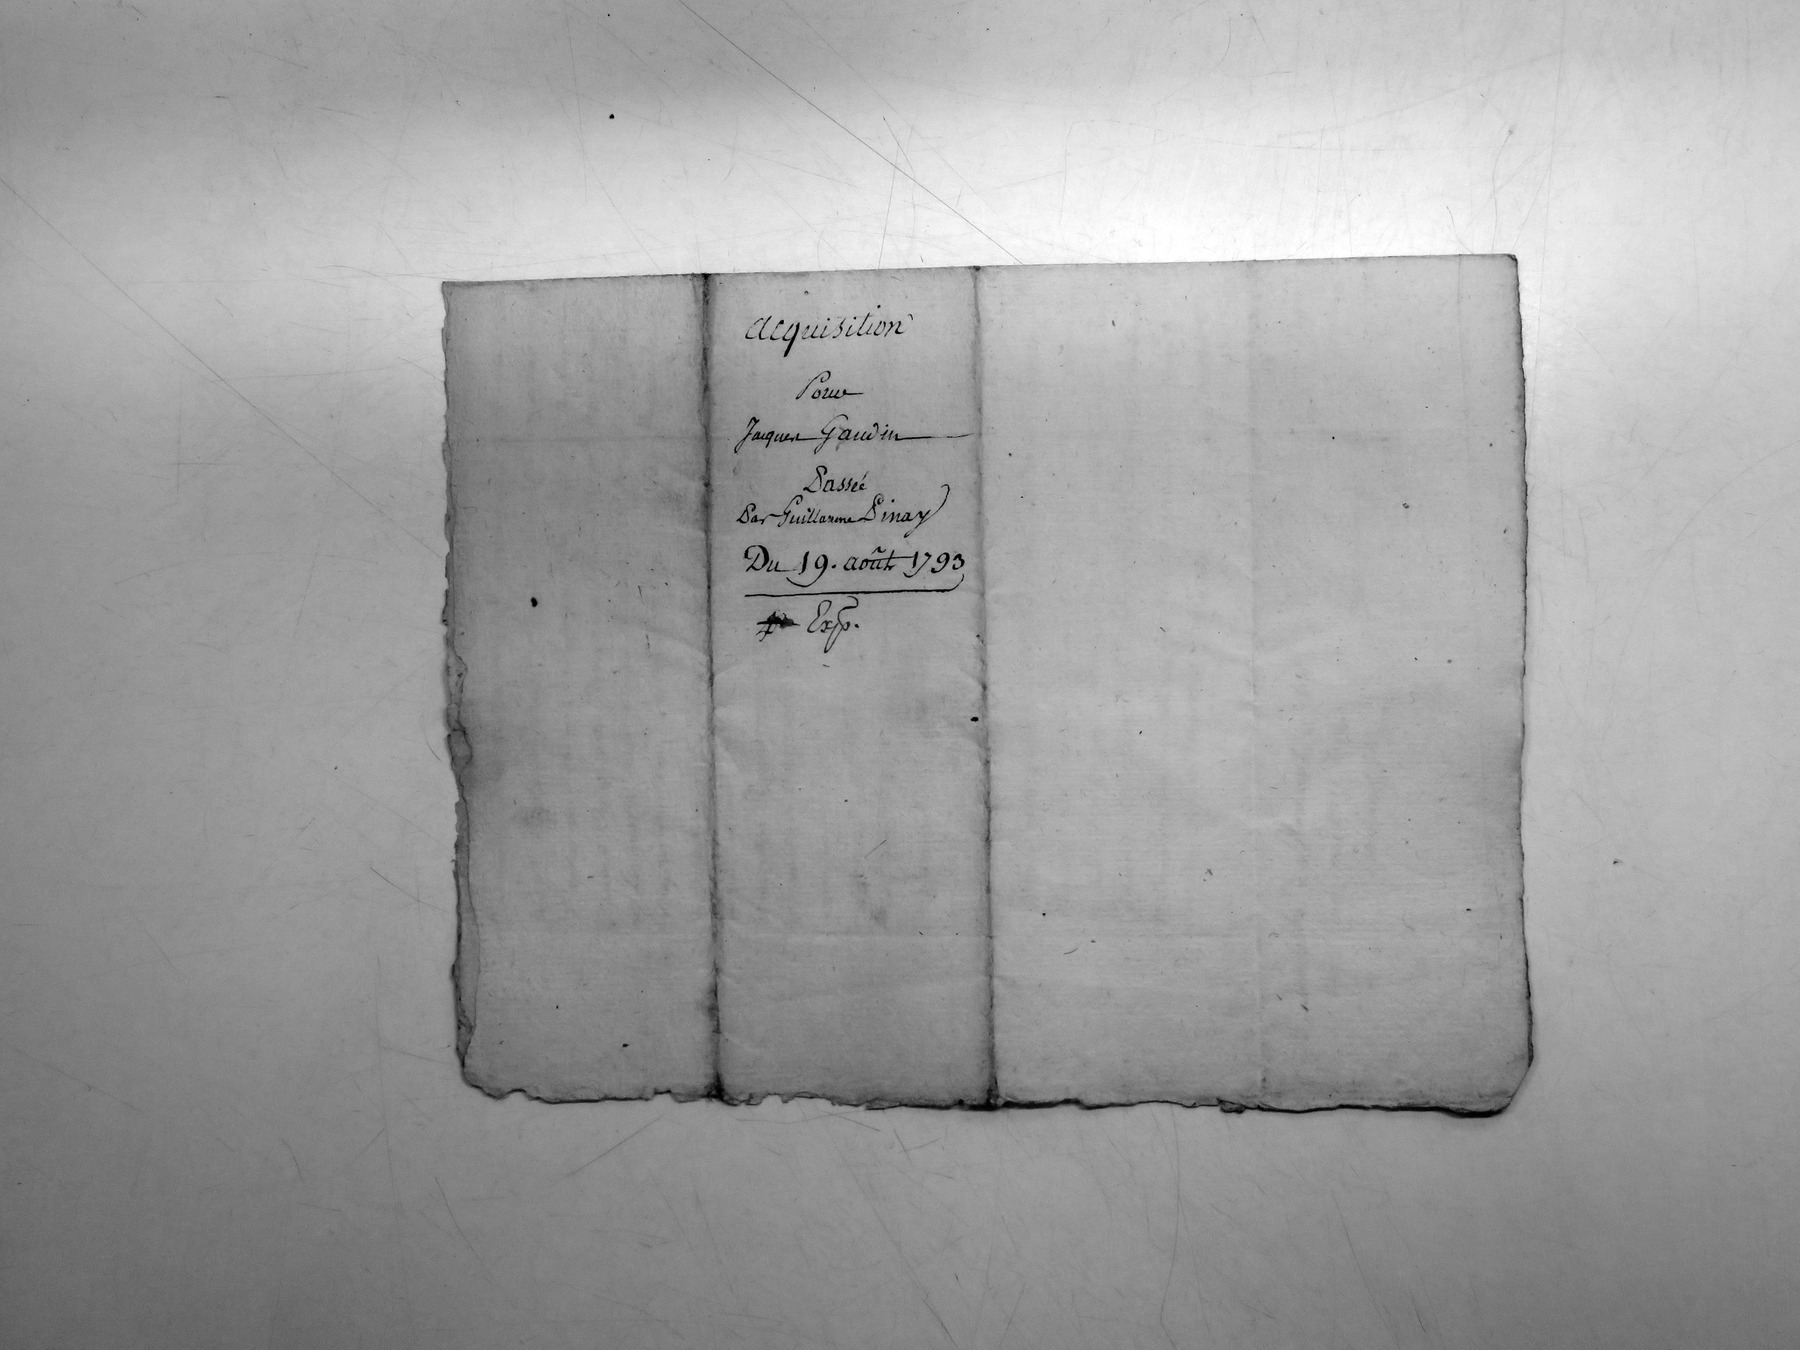 acquisition
Pour
Jacques Gaudin
Passée
Par Guillaume Pinay
Du 19. août 1793
Exp.